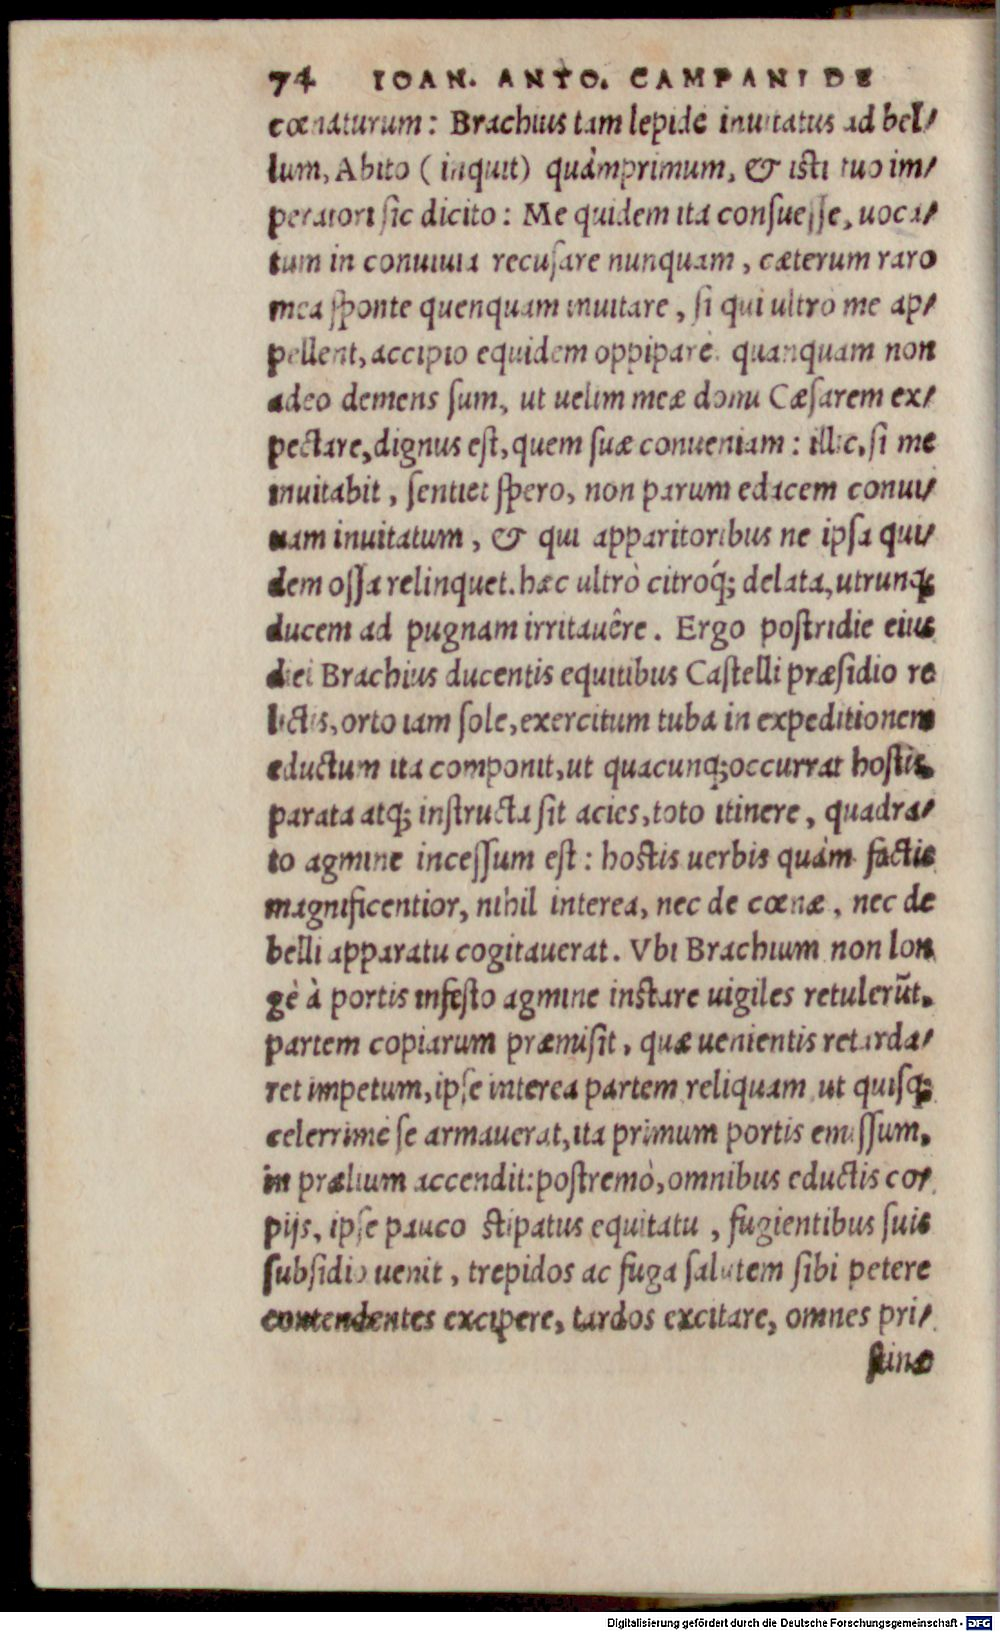 74 IOAN. ANTO. CAMPANI DE
cœnaturum: Brachius tam lepide inuitatus ad bel/
lum, Abito (inquit) quàmprimum, & isti tuo im/
peratori sic dicito: Me quidem ita consuesse, uoca/
tum in conuiuia recusare nunquam, cæterum raro
mea sponte quenquam inuitare, si qui ultro me ap/
pellent, accipio equidem oppiparè. quanquam non
adeo demens sum, ut uelim meæ domi Cæsarem ex/
pectare, dignus est, quem suæ conueniam: illic, si me
inuitabit, sentiet spero, non parum edacem conui/
uam inuitatum, & qui apparitoribus ne ipsa qui/
dem ossa relinquet. hæc ultrò citroq́; delata, utrunq;
ducem ad pugnam irritauêre. Ergo postridie eius
diei Brachius ducentis equitibus Castelli præsidio re
lictis, orto iam sole, exercitum tuba in expeditionem
eductum ita componit, ut quacunq; occurrat hostis,
parata atq; instructa sit acies, toto itinere, quadra/
to agmine incessum est: hostis uerbis quàm factis
magnificentior, nihil interea, nec de cœnæ, nec de
belli apparatu cogitauerat. Vbi Brachium non lon
gè à portis infesto agmine instare uigiles retulerũt,
partem copiarum præmisit, quæ uenientis retarda/
ret impetum, ipse interea partem reliquam ut quisq;
celerrimè se armauerat, ita primum portis emissum,
in prælium accendit: postremò, omnibus eductis co/
pijs, ipse pauco stipatus equitatu, fugientibus suis
subsidio uenit, trepidos ac fuga salutem sibi petere
contendentes excipere, tardos excitare, omnes pri/
stinæ